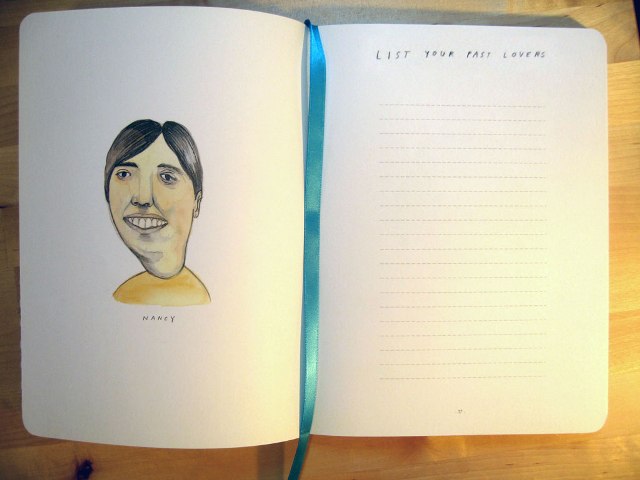 NANCY
LIST YOUR PAST LOVERS